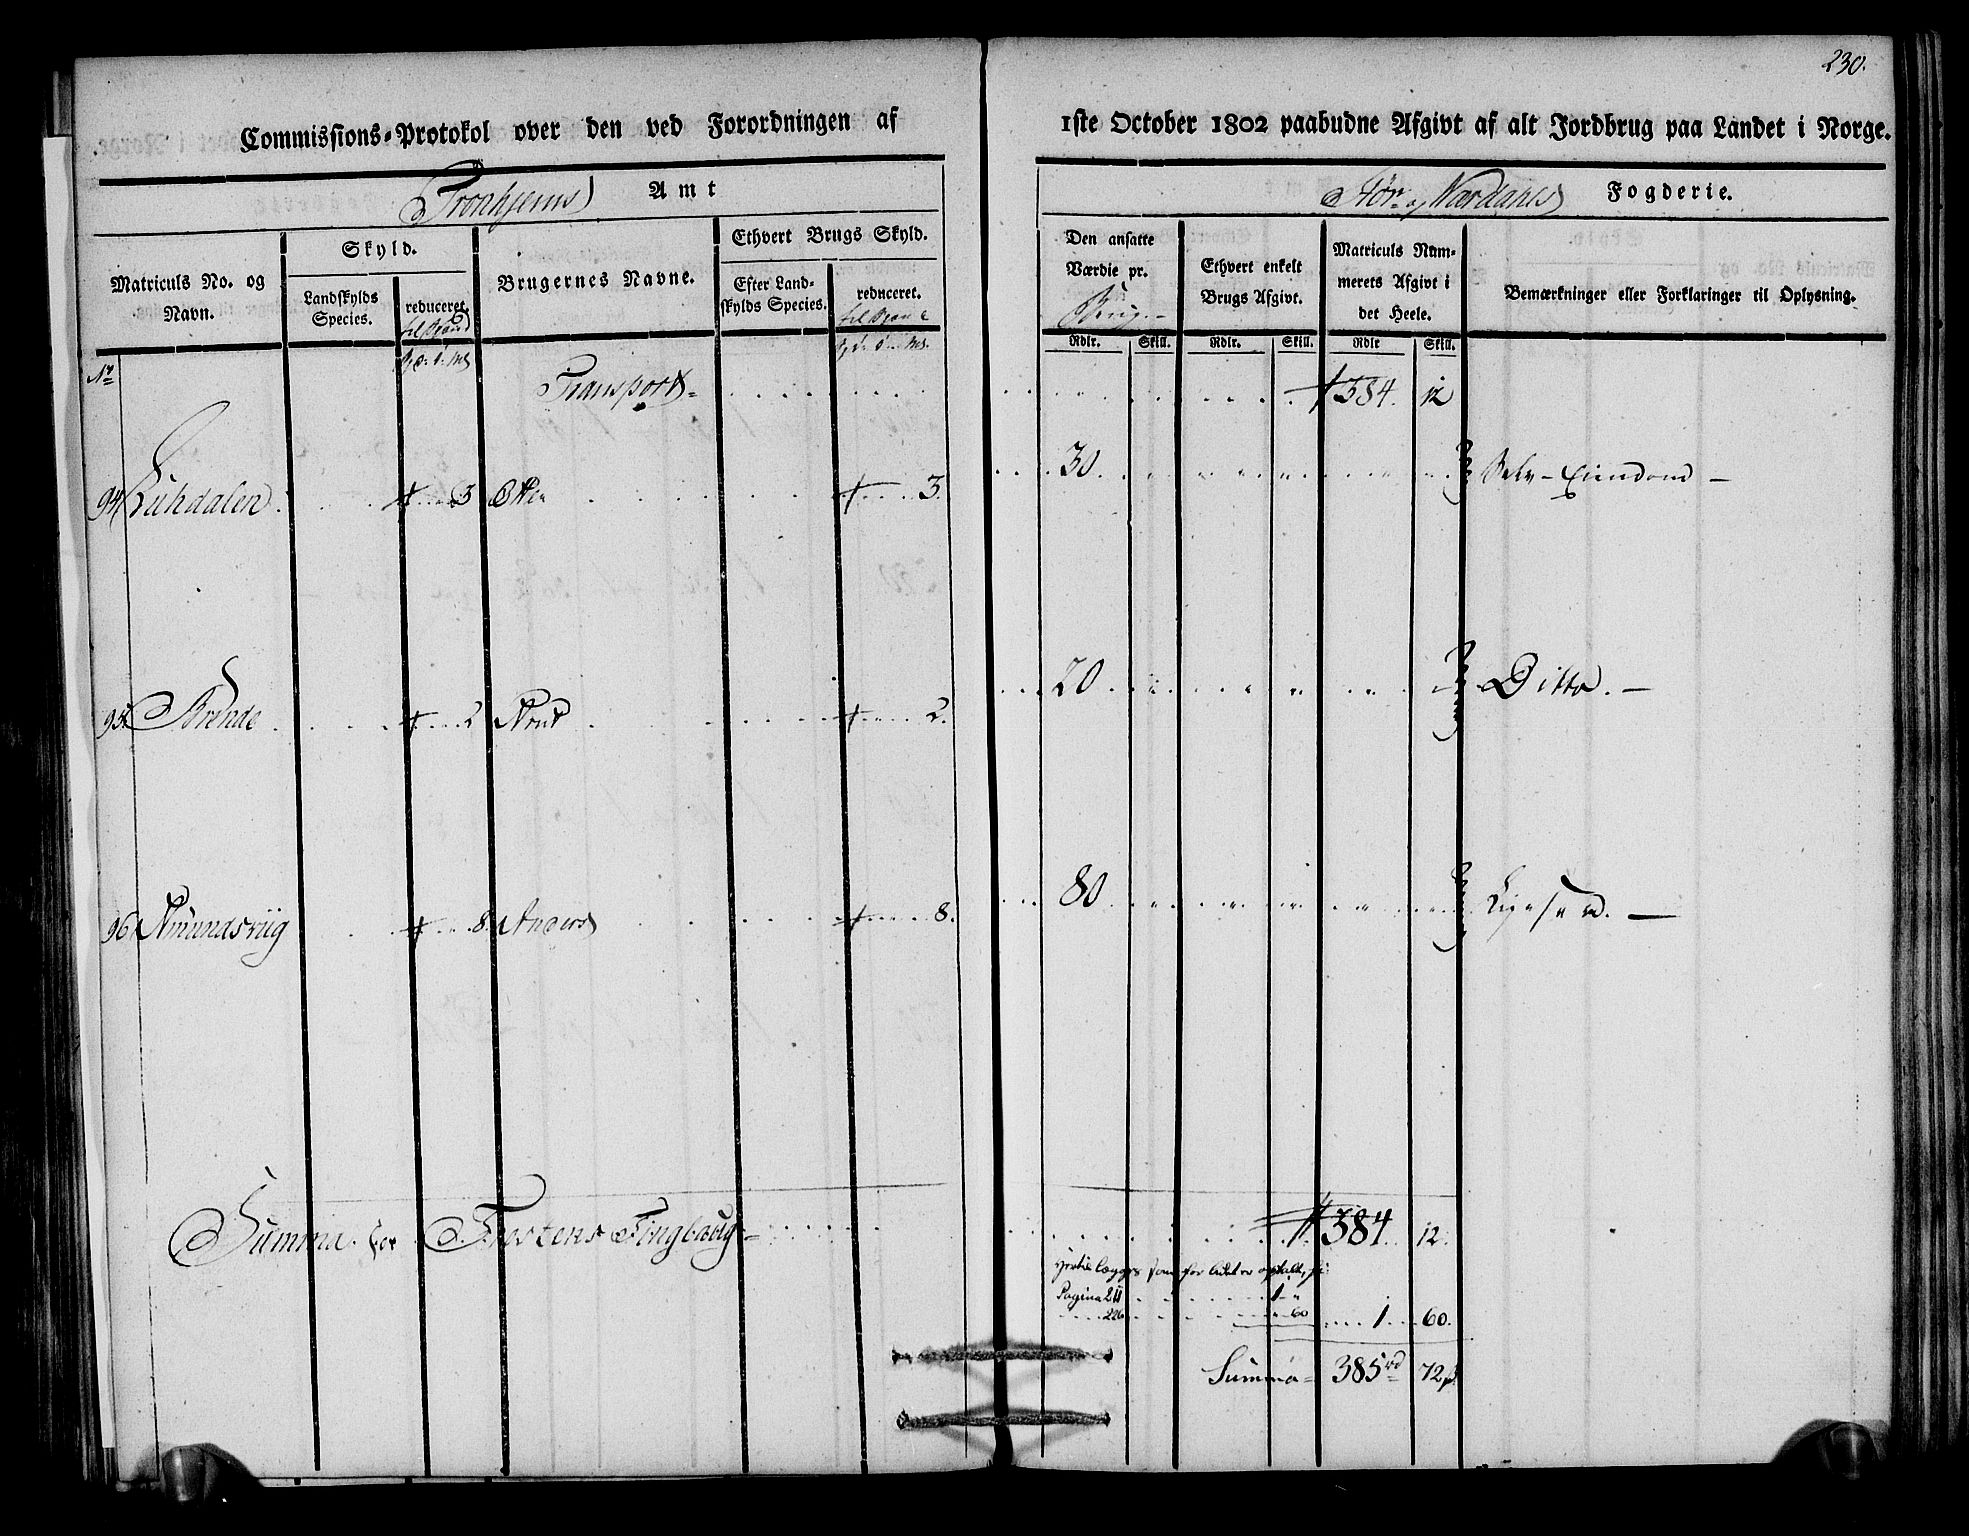 230.
Commissions-Protokol over den ved Forordningen af 1ste October 1802 paabudne Afgivt af alt Jordbrug paa Landet i Norge.
Tronhjems Amt
Stør- og Værdahls Fogderie.
Matriculs No. og Navn.
Skyld.
Landskylds Species.
reduceret.
Brugernes Navne.
Ethvert Brugs Skyld.
Efter Landskylds Species.
reduceret.
Den ansatte Værdie pr. Brug.
Ethvert enkelt Brugs Afgivt.
Matriculs Nummerets Afgivt i det Heele.
Bemærkninger eller Forklaringer til Oplysning.
Rdlr. Skill. Rdlr. Skill. Rdlr Skill.
No
Transport 384. 12
94 3 3. 30 Selv-Eiendom
95. Brende 2 Knut 2. 20 Ditto.
96 Amundsviig 8. Anders 8. 80
Summa for Frostens Tinglaug 384 12.
Pagina 211 1
226 60 1 60.
Summa 385 rd 72 ß